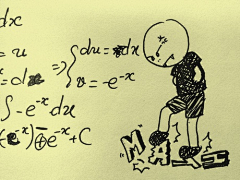 dx
= u
= dx ⇒ { du = dx
v = -e^{-x}
∫ -e^{-x} du
(e^{-x}) ⊕ e^{-x} + C
MATH